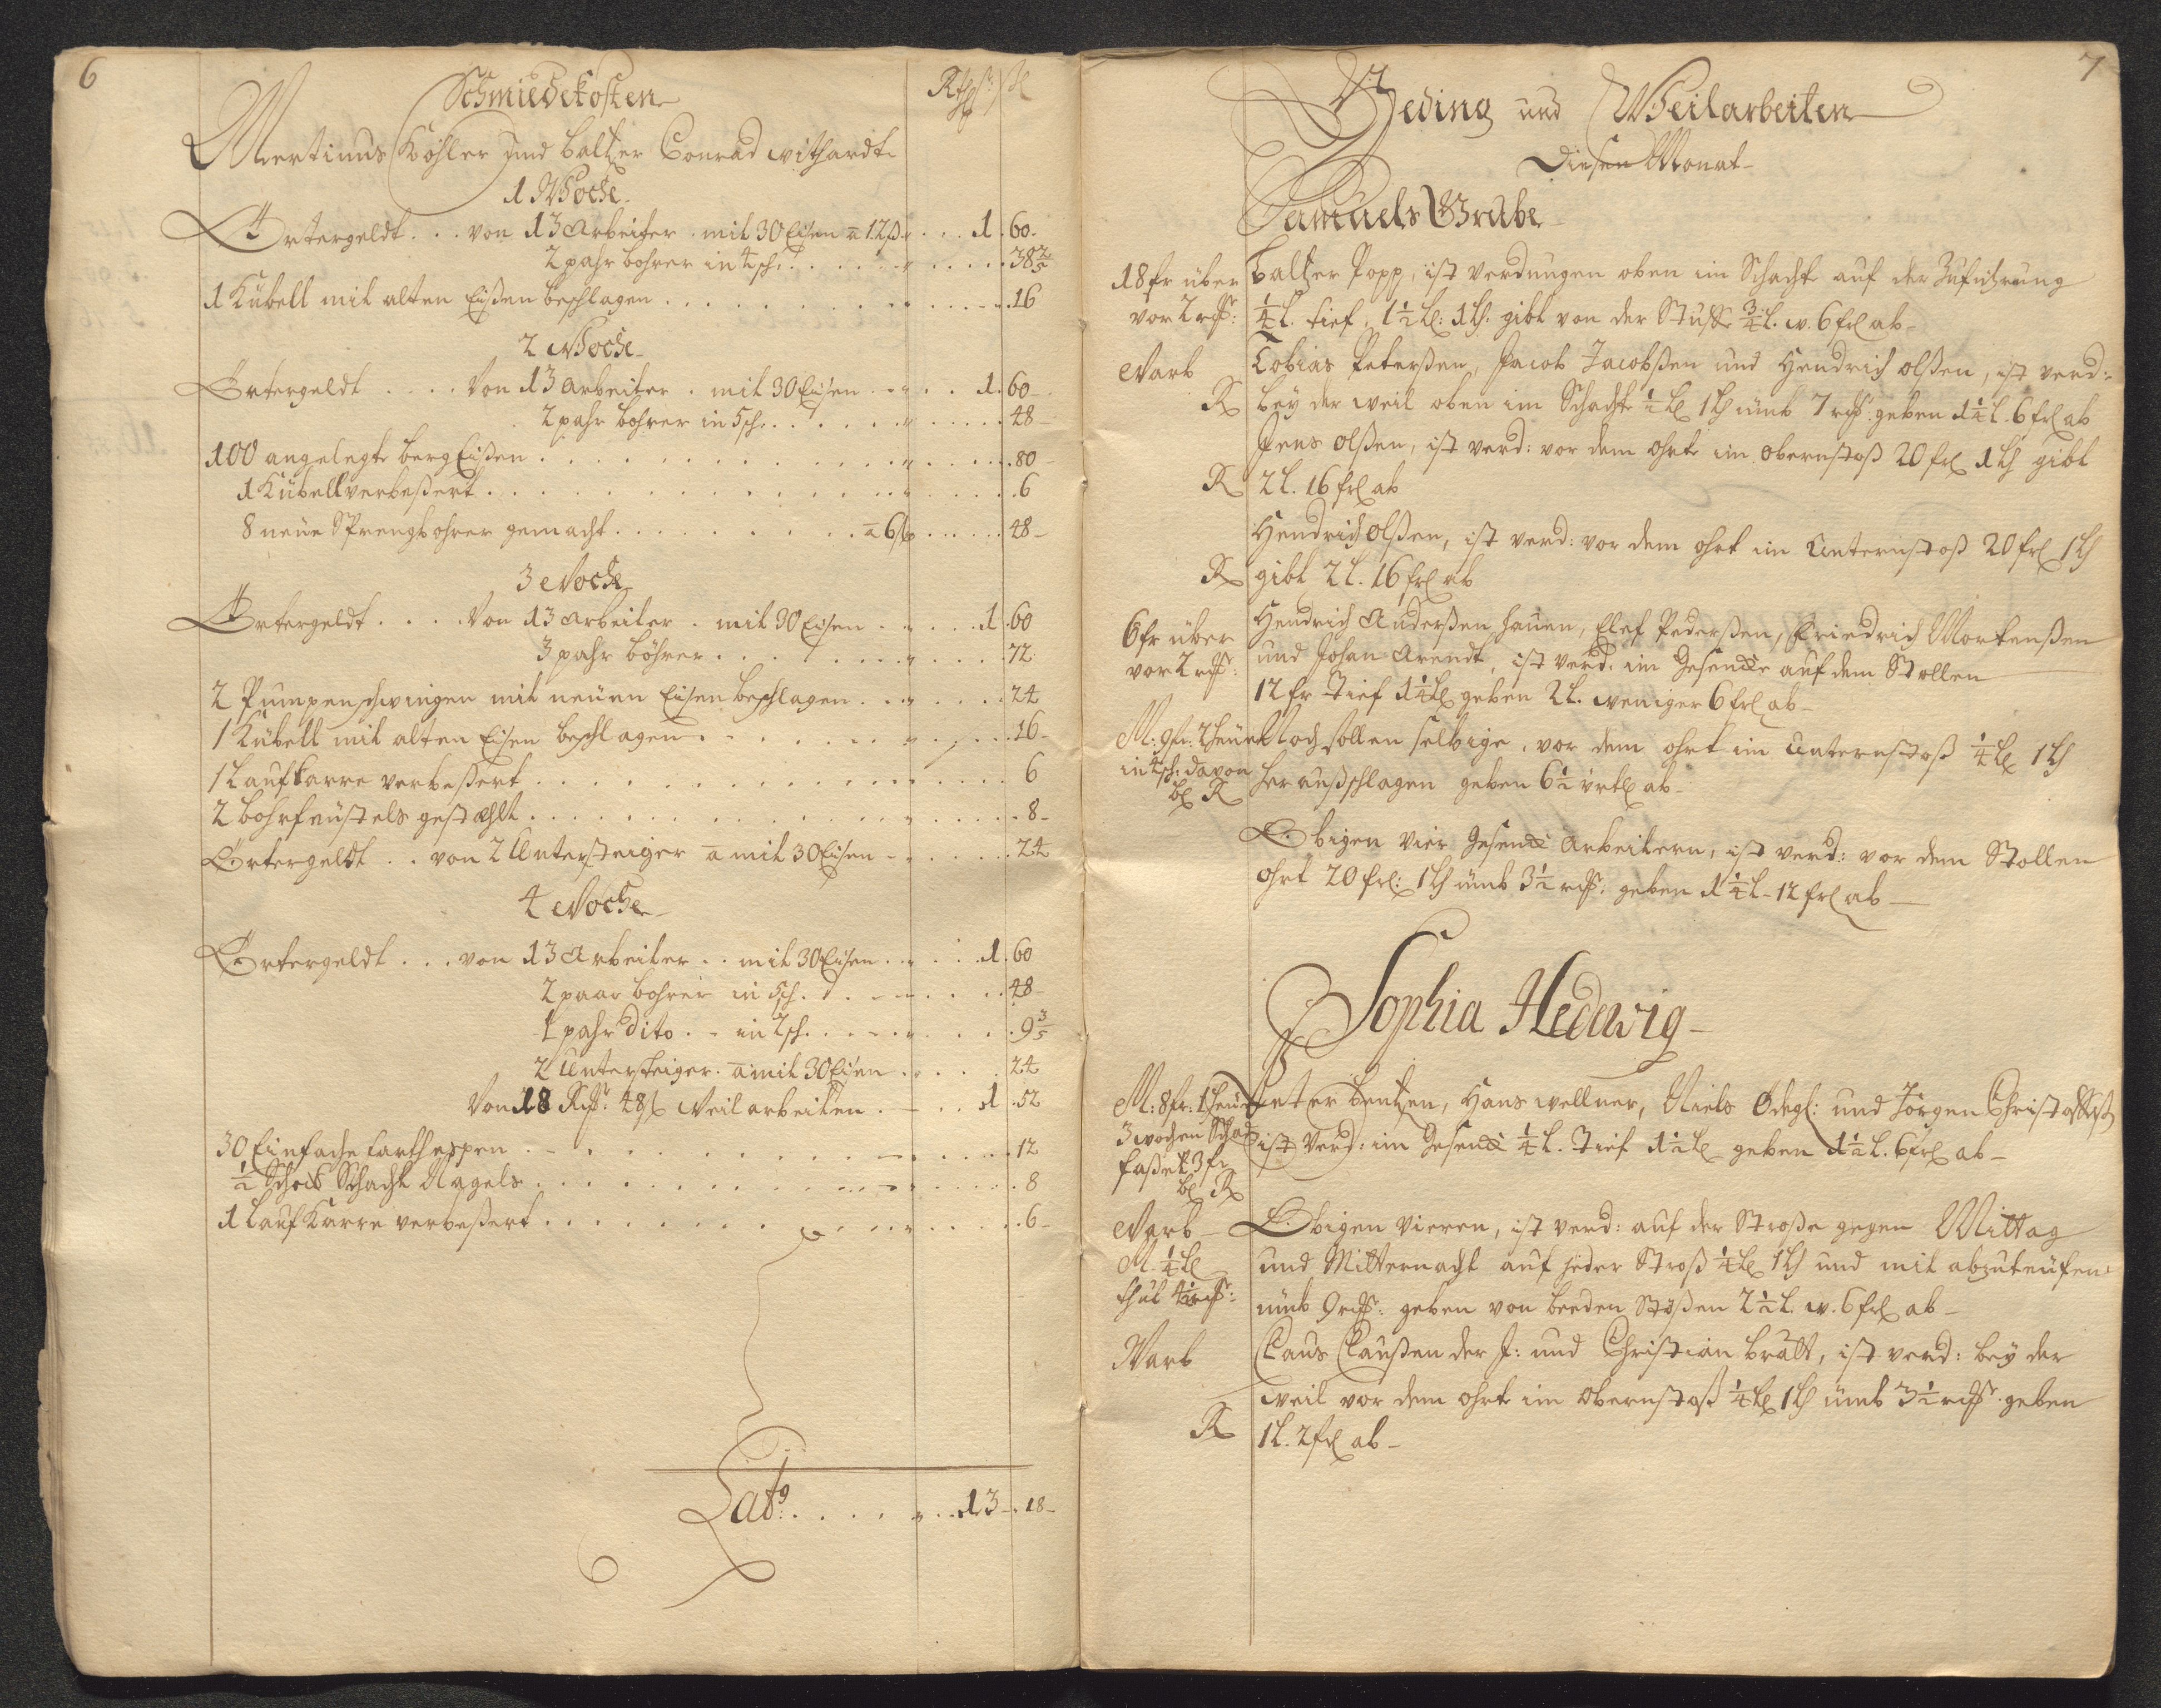 6
Schmiedekosten
Rthr: ß
Mertinus Köhler und Baltzer Conrad Withardt
1 Woche
Örtergeldt . . . von 13 Arbeiter . mit 30 Eisen a 12 ß . . . 1. 60.
2 pahr bohrer in 4 sch: . . . . . 38 2/5
1 Kübell mit alten Eißen beschlagen . . . . . 16
2 Woche
Örtergeldt . . . . Von 13 Arbeiter . mit 30 Eisen . . . 1. 60
2 pahr bohrer in 5 sch . . . . . 48
100 angelegte berg Eißen . . . . . 80
1 Kübell verbeßert . . . . . 6
8 neüe Sprengbohrer gemacht . . . . . a 6 ß . . . . 48
3 Woche
Örtergeldt . . . . Von 13 Arbeiter . mit 30 Eisen . . . 1 60
3 pahr böhrer . . . . . 72
2 Pumpenschwingen mit neüen Eisen beschlagen . . . . 24
1 Kübell mit alten Eisen beschlagen . . . . . 16
1 Laufkarre verbeßert . . . . . 6
2 bohrfeüstels gestæhlt . . . . . 8
Örtergeldt . . von 2 Untersteiger a mit 30 Eisen . . . . 24
4 Woche
Örtergeldt . . . von 13 Arbeiter . . mit 30 Eisen . . . 1. 60
2 paar bohrer in 5 sch. . . . . 48
1 pahr dito . . in 2 sch. . . . . 9 3/5
2 Untersteiger. a mit 30 Eisen . . . . 24
Von 18 Rthr: 48 ß Weilarbeiten . . . 1. 52
30 Einfache Karthespen . . . . . 12
1/2 Schock Schacht Nagels . . . . . 8
1 Lauf Karre verbeßert . . . . . 6
Lats: . . . . . 13 . 18
7
Geding und Weilarbeiten
Diesen Monat
Samuels Grube
18 fr über Baltzer Popp, ist verdungen oben im Schacht auf der Zuführung
vor 2 rthr: 1/4 L. tief, 1 1/2 L: 1 Lh. gibt von der Stuffe 3/4 L. w. 6 frl ab
Warb Tobias Peterßen, Jacob Jacobßen und Hendrich Olßen, ist verd:
R bey der weil oben im Schacht 1/2 L 1 Lh umb 7 rthr: geben 1 1/4 L. 6 frl ab
Jens Olßen, ist verd: vor dem ohrt im Obernstoß 20 frl 1 Lh gibt
R 2 L. 16 frl ab
Hendrich Olßen, ist verd: vor dem ohrt im Unternstoß 20 frl 1 Lh
R gibt 2 L. 16 frl ab
6 fr über Hendrich Anderßen Hauen, Elef Pederßen, Friedrich Mortenßen
vor 2 rthr: und Johan Arendt, ist verd. im Gesencke auf dem Stollen
12 fr Tief 1 1/4 L geben 2 L. weniger 6 frl ab
M. 9 fr. Noch sollen selbige, vor dem ohrt im Unternstoß 1/4 L 1 Lh
in 4 sch: davon her außschlagen geben 6 1/2 ab
R
Obigen vier Gesenck Arbeitern, ist verd: vor dem Stollen
ohrt 20 frl: 1 Lh umb 3 1/2 rthr: geben 1 1/4 L. 12 frl ab
Sophia Hedewig
M: 8 fr. Peter Bentzen, Hans Wellner, Niels Ödegl: und Jörgen
3 wochen ist verd: im Gesenck 1/4 L. Tief 1 1/2 L geben 1 1/2 L. 6 frl ab
R
Warb Obigen Vieren, ist verd: auf der Stroße gegen Mittag
M. 1/4 L und Mitternacht auf jeder Stroß 1/4 L 1 Lh und mit abzuteüfen
umb 9 rthr: geben von beeden Stößen 2 1/2 L. w. 6 frl ab
Warb Claus Claußen der J: und Christian Brätt, ist verd: bey der
weil vor dem ohrt im Obernstoß 1/4 L 1 Lh umb 3 1/2 rthr: geben
R 1 L. 2 frl ab